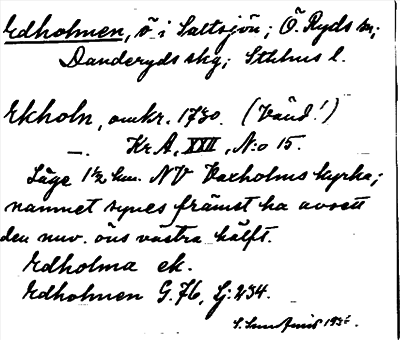 Edholmen, ö i Saltsjön; Ö. Ryds sn;
Danderyds skg; Sthlms l.
Ekholn, omkr. 1730. (Vänd!)
—. Kr A, XXII, N:o 15.
Läge 1½ km. NV Vaxholms kyrka;
namnet synes främst ha avsett
den nuv. öns västra hälft.
Edholma ek.
Edholmen G. 76, Lj: 234.